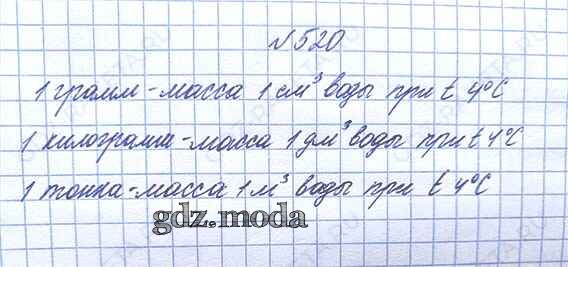 №520
1 грамм - масса 1 см³ воды при t 4°C
1 килограмм - масса 1 дм³ воды при t 4°C
1 тонна - масса 1 м³ воды при t 4°C
gdz.moda